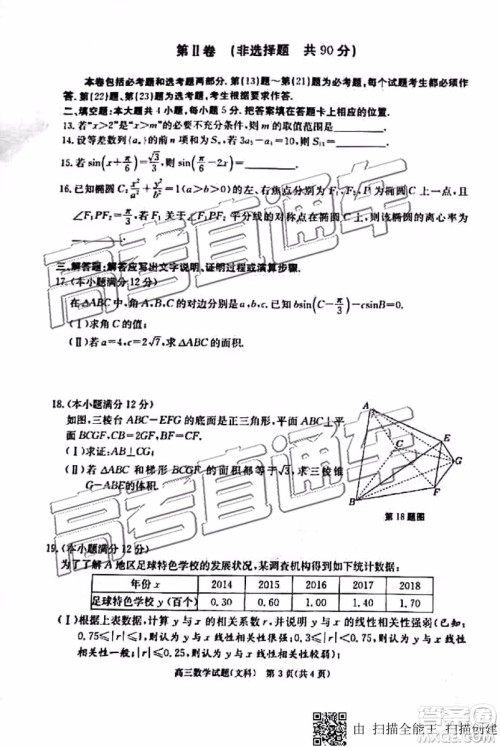 第Ⅱ卷 (非选择题 共90分)
本卷包括必考题和选考题两部分.第(13)题~第(21)题为必考题,每个试题考生都必须作
答.第(22)题、第(23)题为选考题,考生根据要求作答.
二、填空题:本大题共4小题,每小题5分.把答案填在答题卡上相应的位置.
13. 若“x>2”是“x>m”的必要不充分条件,则m的取值范围是
14. 设等差数列{aₙ}的前n项和为Sₙ,若3a₅-a₁=10,则S₁₃=
15. 若sin(x+π/6)=√3/3,则sin(π/6-2x)=
16. 已知椭圆C:x²/a²+y²/b²=1(a>b>0)的左、右焦点分别为F₁,F₂,P为椭圆C上一点,且
∠F₁PF₂=π/3,若F₁关于∠F₁PF₂平分线的对称点在椭圆C上,则该椭圆的离心率为
三、解答题:解答应写出文字说明、证明过程或演算步骤.
17.(本小题满分12分)
在△ABC中,角A、B、C的对边分别是a,b,c.已知bsin(C-π/3)-csinB=0.
(Ⅰ)求角C的值;
(Ⅱ)若a=4,c=2√7,求△ABC的面积.
18.(本小题满分12分)
如图,三棱台ABC-EFG的底面是正三角形,平面ABC⊥平
面BCGF,CB=2GF,BF=CF.
(Ⅰ)求证:AB⊥CG;
(Ⅱ)若△ABC和梯形BCGF的面积都等于√3,求三棱锥
G-ABE的体积.
A
C
E
G
B
F
第18题图
19.(本小题满分12分)
为了了解A地区足球特色学校的发展状况,某调查机构得到如下统计数据:
年份x 2014 2015 2016 2017 2018
足球特色学校y(百个) 0.30 0.60 1.00 1.40 1.70
(Ⅰ)根据上表数据,计算y与x的相关系数r,并说明y与x的线性相关性强弱(已知:
0.75≤|r|≤1,则认为y与x线性相关性很强;0.3≤|r|<0.75,则认为y与x
线性相关性一般;|r|≤0.25,则认为y与x线性相关性较弱);
高三数学试题(文科) 第3页(共4页)
高考直通车
高考直通车
由 扫描全能王 扫描创建